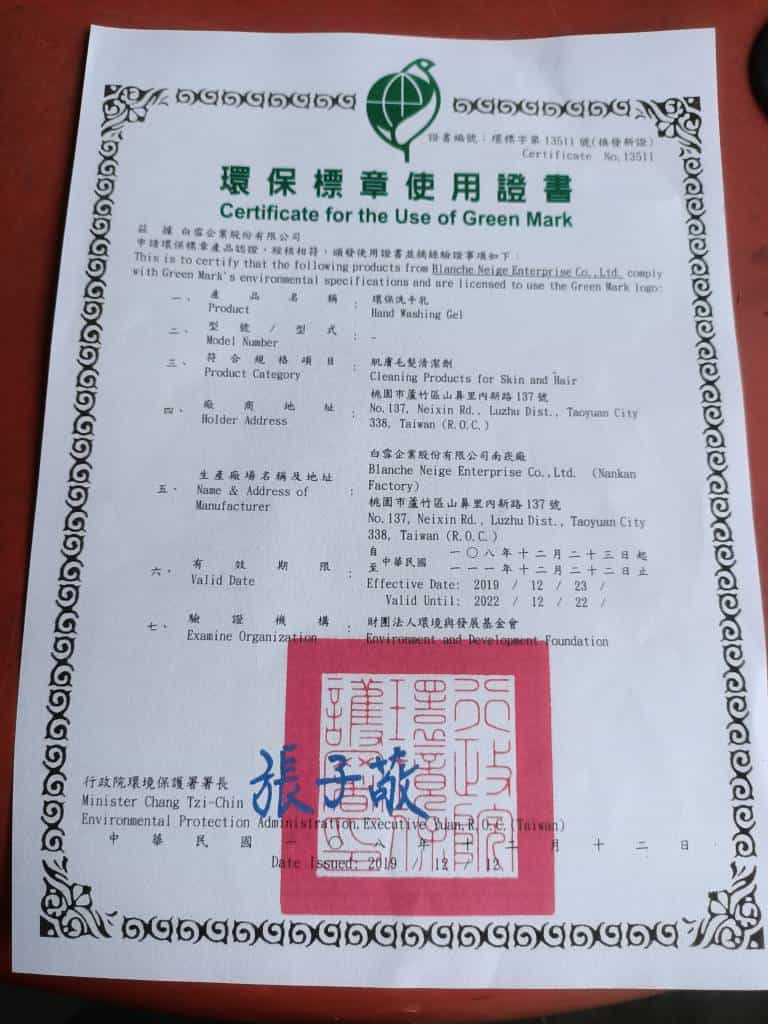 證書編號：環標字第 13511 號(換發新證)
Certificate No.13511
環保標章使用證書
Certificate for the Use of Green Mark
茲 據 白雪企業股份有限公司
申請環保標章產品認證，經核相符，頒發使用證書並摘錄驗證事項如下：
This is to certify that the following products from Blanche Neige Enterprise Co.,Ltd. comply
with Green Mark's environmental specifications and are licensed to use the Green Mark logo:
一、 產品名稱 : 環保洗手乳
Product Hand Washing Gel
二、 型號/型式 : -
Model Number
三、 符合規格項目 : 肌膚毛髮清潔劑
Product Category Cleaning Products for Skin and Hair
四、 廠商地址 : 桃園市蘆竹區山鼻里內新路 137 號
Holder Address No.137, Neixin Rd., Luzhu Dist., Taoyuan City
338, Taiwan (R.O.C.)
白雪企業股份有限公司南崁廠
五、 生產廠場名稱及地址 : Blanche Neige Enterprise Co.,Ltd. (Nankan
Name & Address of Factory)
Manufacturer 桃園市蘆竹區山鼻里內新路 137 號
No.137, Neixin Rd., Luzhu Dist., Taoyuan City
338, Taiwan (R.O.C.)
六、 有效期限 : 自 中華民國 一〇八年十二月二十三日起
至 一一一年十二月二十二日止
Valid Date Effective Date: 2019 / 12 / 23 /
Valid Until: 2022 / 12 / 22 /
七、 驗證機構 : 財團法人環境與發展基金會
Examine Organization Environment and Development Foundation
行政院環境保護署署長 張子敬
Minister Chang Tzi-Chin
Environmental Protection Administration,Executive Yuan,R.O.C.(Taiwan)
中華民國一〇八年十二月十二日
Date Issued: 2019 / 12 / 12
行政院
環境保
護署印